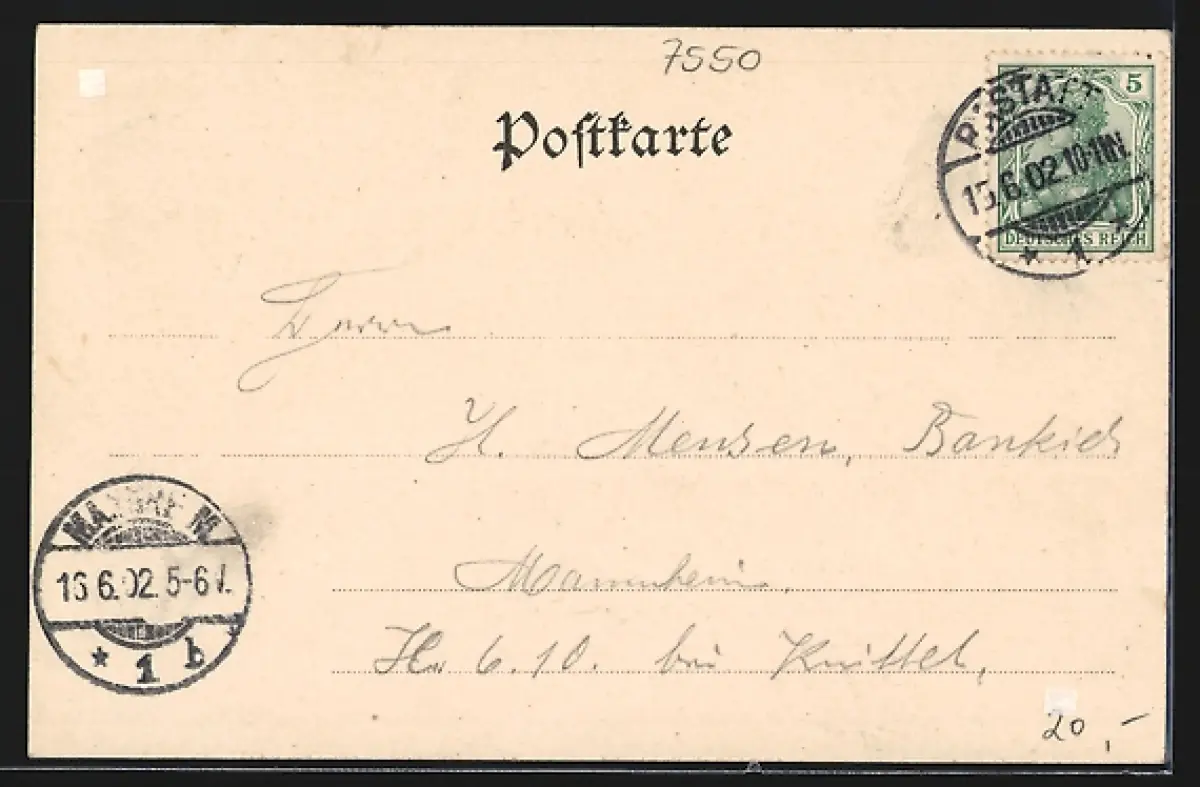 7550
Postkarte
5
RASTATT
15.6.02.10-11N.
DEUTSCHES REICH
* 1 *
Herrn
H. Mensen, Bankich
MANNHEIM
16 6.02. 5-6 V.
* 1 b
Mannheim,
H. 6. 10. bei Knittel,
20,-